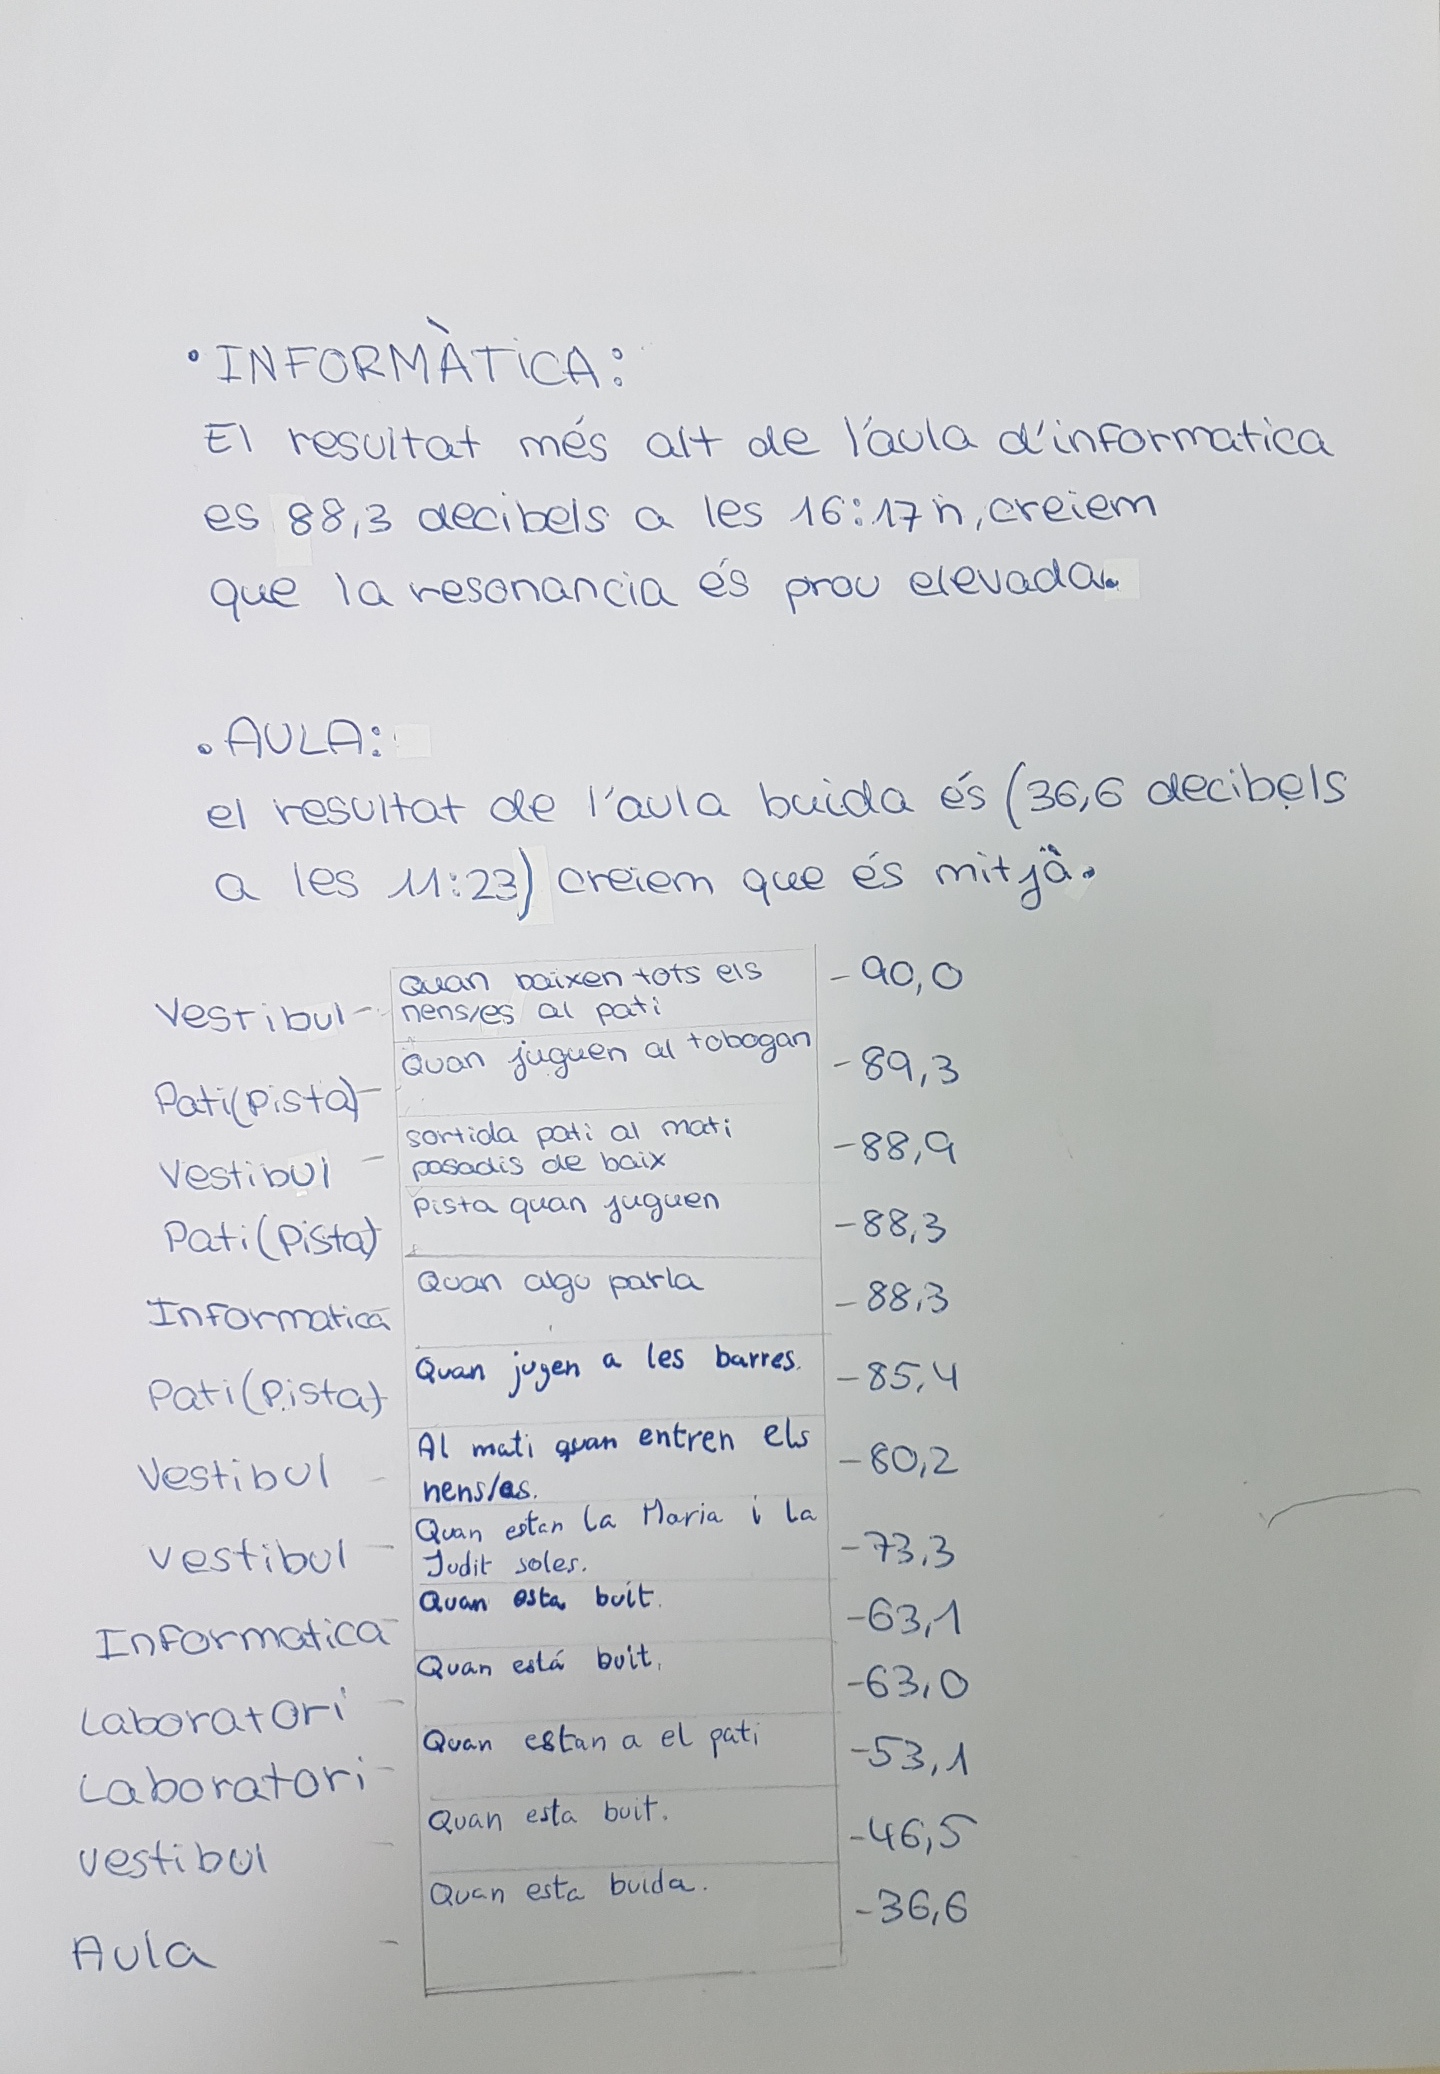 • INFORMÀTiCA:
El resultat més alt de l'aula d'informatica
es 88,3 decibels a les 16:17 h, creiem
que la resonancia és prou elevada.
• AULA:
el resultat de l'aula buida és (36,6 decibels
a les 11:23) creiem que és mitjà.
Vestibul - Quan baixen tots els nens/es al pati - 90,0
Pati(pista) - Quan juguen al tobogan - 89,3
Vestibul - sortida pati al mati posadis de baix - 88,9
Pati(pista) pista quan juguen - 88,3
Informatica Quan algu parla - 88,3
Pati(Pista) Quan jugen a les barres. - 85,4
Vestibul - Al mati quan entren els nens/es. - 80,2
vestibul - Quan estan la Maria i la Judit soles. - 73,3
Informatica - Quan esta buit. - 63,1
Laboratori - Quan está buit. - 63,0
Laboratori - Quan estan a el pati - 53,1
vestibul - Quan esta buit. - 46,5
Aula - Quan esta buida. - 36,6